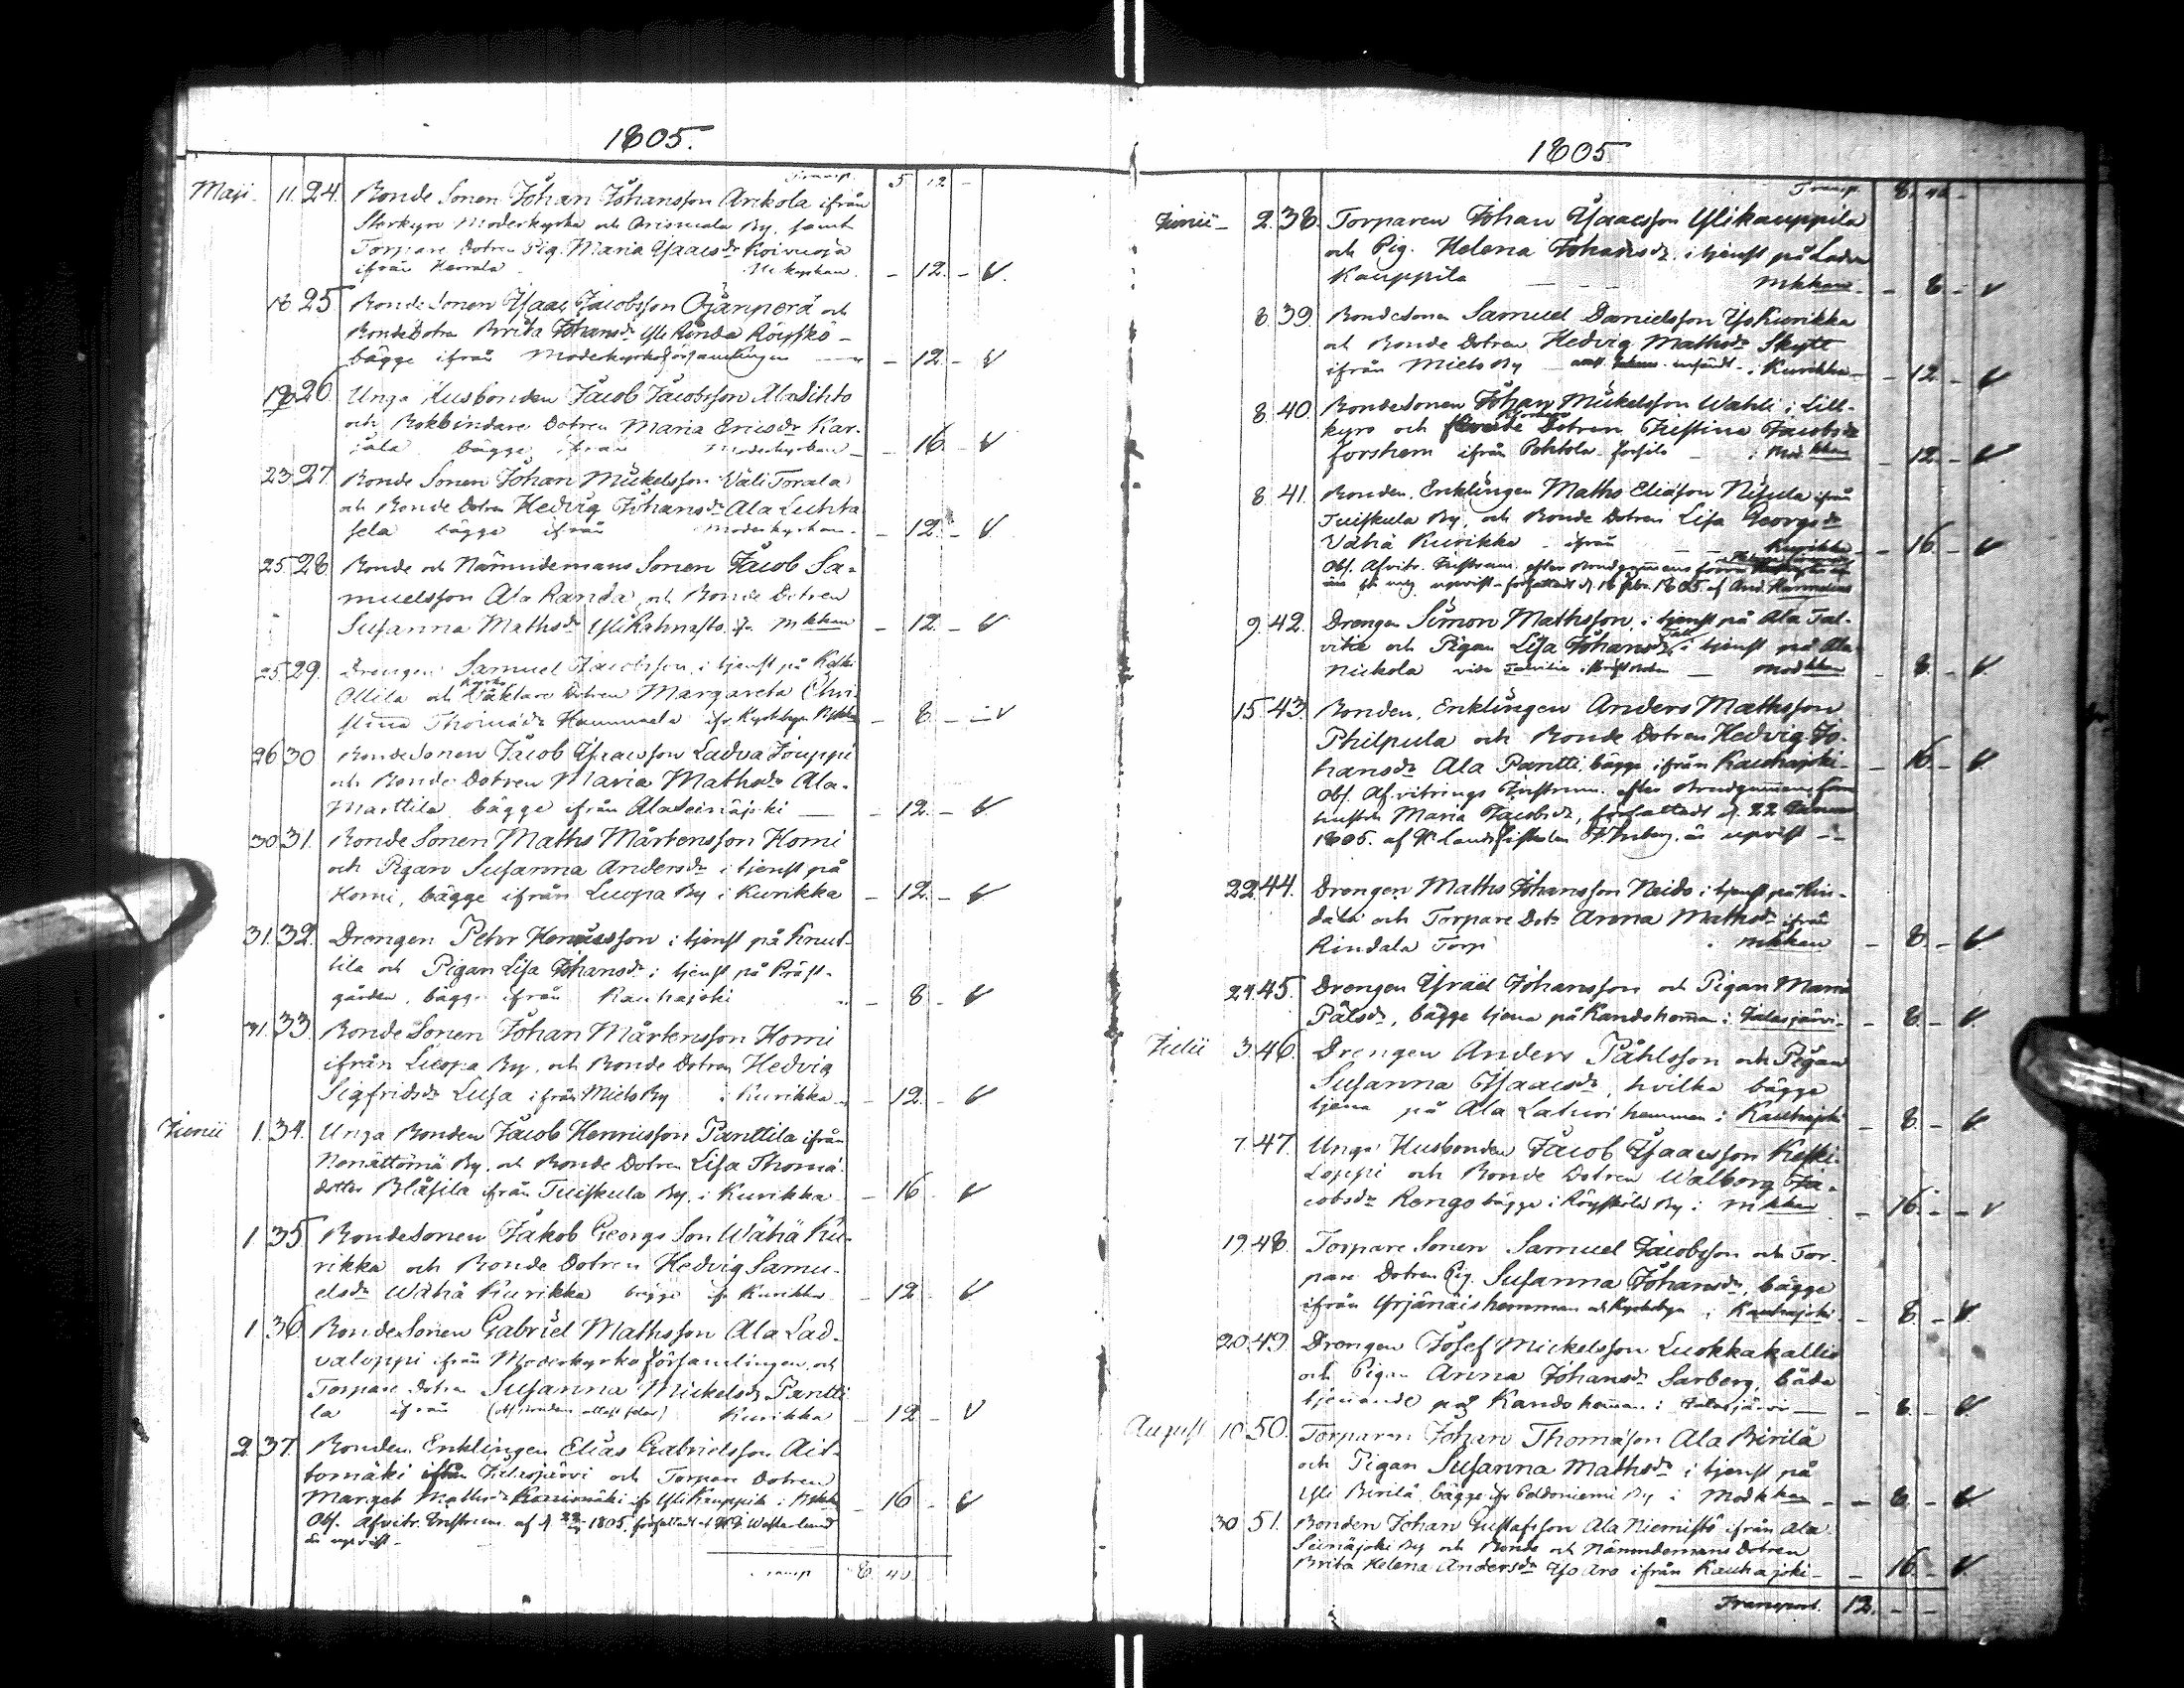 1805.
Transp. 5 12 -
Maji. 11. 24. Bonde Sonen Johan Johansson Ankola ifrån
Storkyro Moderkyrka och Orismala By, samt
Torpare Dotren Pig. Maria Isaacsdr Koivuoja
ifrån Herrala - 12. - V.
18 25 Bonde Sonen Isaac Jacobsson Ojanperä och
Bonde Dotren Brita Johansdr Yli Rinda Röyskö -
bägge ifrån Moderkyrkoförsamlingen - 12. - V
26. Unga Husbonden Jacob Jacobsson Ala Sihto
och Bokbindare Dotren Maria Ericsdr Kar-
jala bägge ifrån Moderkyrkan - 16. - V
23. 27. Bonde Sonen Johan Mickelsson Väli Torala
och Bonde Dotren Hedvig Johansdr Ala Luhta
sela bägge ifrån Moderkyrkan. - 12. - V.
25. 28 Bonde och Nämndemans Sonen Jacob Sa-
muelsson Ala Randa och Bonde Dotren
Susanna Mathsdr Yli Rahnasto fr. Mkkan - 12. - V
25. 29. Drengen Samuel Jacobsson i tjenst på Kaski
Ollila och Kyrko Väktare Dotren Margareta Chri-
stina Thomædr Hannuela ifr. Kyrkbyn - 8. - V
26 30 Bonde Sonen Jacob Isaacsson Ladva Jouppi
och Bonde Dotren Maria Mathsdr Ala-
Marttila bägge ifrån Ala Seinäjoki - 12. - V
30. 31. Bonde Sonen Maths Mårtensson Komi
och Pigan Susanna Andersdr i tjenst på
Komi, bägge ifrån Luopa By i Kurikka - 12. - V
31. 32. Drengen Petr Henricsson i tjenst på Knut-
tila och Pigan Lisa Johansdr i tjenst på Präst-
gården, bägge ifrån Kauhajoki - 8 - V
31. 33. Bonde Sonen Johan Mårtensson Komi
ifrån Luopa By, och Bonde Dotren Hedvig
Sigfridsdr Lusa ifrån Mieto By i Kurikka - 12. - V
Junii 1. 34. Unga Bonden Jacob Henricsson Panttila ifrån
Nenättömä By, och Bonde Dotren Lisa Thomæ
dotter Blåfila ifrån Tuiskula By, i Kurikka - 16 - V
1. 35. Bonde Sonen Jakob Georgs Son Wähä Ku-
rikka och Bonde Dotren Hedvig Samu-
elsdr Wähä Kurikka bägge fr Kurikka - 12 - V
1 36. Bonde Sonen Gabriel Mathsson Ala Lad-
valoppi ifrån Moderkyrko församlingen, och
Torpare Dotren Susanna Mickelsdr Pantti
la ifrån Kurikka - 12 - V
2. 37. Bonden Enklingen Elias Gabrielsson Ait-
tomäki ifrån Jalasjärvi och Torpare Dotren
Marget Mathsdr ifr Yli Kauppila i - 16 - V
Obs. Afvitr. Instrum. af d. 1805. författadt af Westerlund
är upvist -
Transp 8. 40.
1805
Transp. 8. 40 -
Junii - 2. 38. Torparen Johan Isaacsson Ylikauppila
och Pig. Helena Johansdr, i tjenst på Ladva
Kauppila - - - Mkkan - 8 - V
8. 39. Bonde Sonen Samuel Danielsson Iso Kurikka
och Bonde Dotren Hedvig Mathsdr Skytt
ifrån Mieto By - i Kurikka - 12. - V
8. 40. Bonde Sonen Johan Mickelsson Wahli i Lill-
kyro och Dotren Justina Jacobsdr
Forshem ifrån Pohtola - i Mod.kkan - 12. - V
8. 41. Bonden, Enklingen Maths Eliasson Nisula ifrån
Tuiskula By, och Bonde Dotren Lisa Georgsdr
Vähä Kurikka - ifrån - Kurikka - 16. - V
Obs. Afvitr. Instrum. efter Brudgummens förra
upvist - författadt d. 16 1805 af And.
9. 42. Drengen Simon Mathsson, i tjenst på Ala Tal-
vitie och Pigan Lisa Johansdr, i tjenst på Ala
Nickola Mod kkan - 8. - V.
15. 43. Bonden, Enklingen Anders Mathsson
Philpula och Bonde Dotren Hedvig Jo-
hansdr Ala Pantti, bägge ifrån Kauhajoki - 16 - V.
Obs. Afvitrings Instrum. efter Brudgummens förra
hustru Maria Jacobsdr, författadt d. 22
1805. af är upvist -
22. 44. Drengen Maths Johansson Neido i tjenst på Rin-
dala och Torpare Dotr Anna Mathsdr ifrån
Rindala Torp i mkkan - 8. - V.
24. 45. Drengen Israël Johansson och Pigan Maria
Pålsdr, bägge tjena på Kandshoman i Jalasjärvi - 8 - V.
Julii 3. 46. Drengen Anders Påhlsson och Pigan
Susanna Isaacsdr, hvilka bägge
tjena på Ala Laturi hemman i Kauhajoki - 8. - V
7. 47. Unga Husbonden Jacob Isaacsson Keski-
Loppi och Bonde Dotren Walborg Ja-
cobsdr Rengo bägge i Röyskölä By i Mkkan - 16. - V
19. 48. Torpare Sonen Samuel Jacobsson och Tor-
pare Dotren Pig. Susanna Johansdr, bägge
ifrån Yrjänäis hemman och Kyrkobyn i Kauhajoki. - 8 - V.
20. 49. Drengen Josef Mickelsson Luokkakallio
och Pigan Anna Johansdr Sarberg, båda
tjenande på Kands homan i Jalasjärvi - 8. - V.
August 10 50. Torparen Johan Thomæson Ala Birilä
och Pigan Susanna Mathsdr i tjenst på
Yli Birilä, bägge ifr Poldoniemi By i Modkkan - 8. - V
30 51. Bonden Johan Gustafsson Ala Niemistö ifrån Ala
Seinäjoki By och Bonde och Nämndemans Dotren
Brita Helena Andersdr Iso Aro ifrån Kauhajoki - 16. - V.
Transport. 12. - -